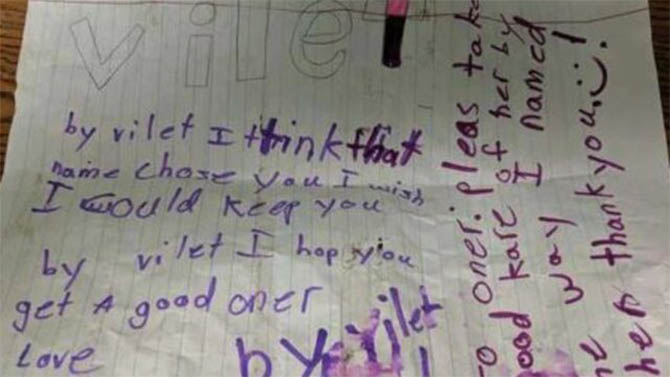 vilet
by vilet I think that
name chose you I wish
I would keep you
by vilet I hop you
get A good oner
Love
by vilet
to oner: pleas take
ood kare of her by
he way I named
her thankyou!